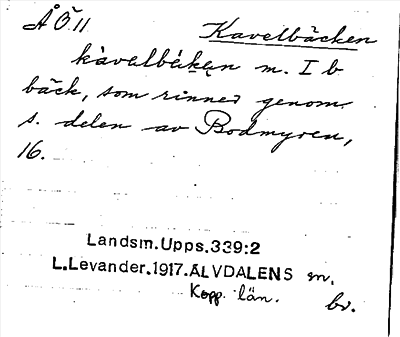 ÅÖ. 11 Kavelbäcken
kàvalbä́kęn m. I b
bäck, som rinner genom
s. delen av Bodmyren,
16.
Landsm.Upps.339:2
L.Levander.1917.ÄLVDALENS sn.
Kopp. län.
bv.